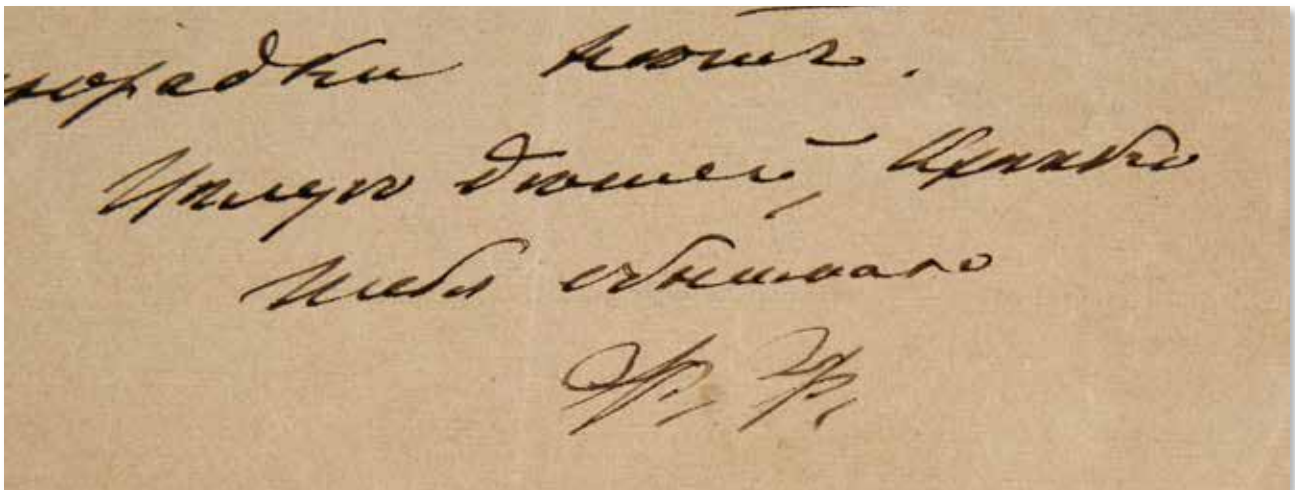 хорадки нѣтъ.
Цѣлую дѣтей, крѣпко
тебя обнимаю